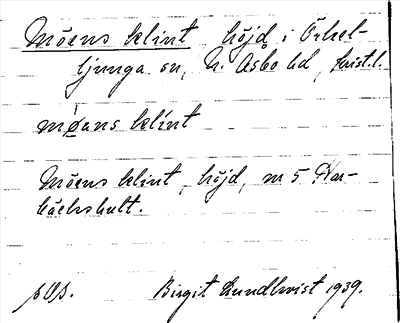 Möens klint höjd i Örkel-
ljunga sn, N. Åsbo hd, Krist.l.
møans klint
Möens klint, höjd, nr 5 Har-
bäckshult.
sOs. Birgit Lundkvist 1939.